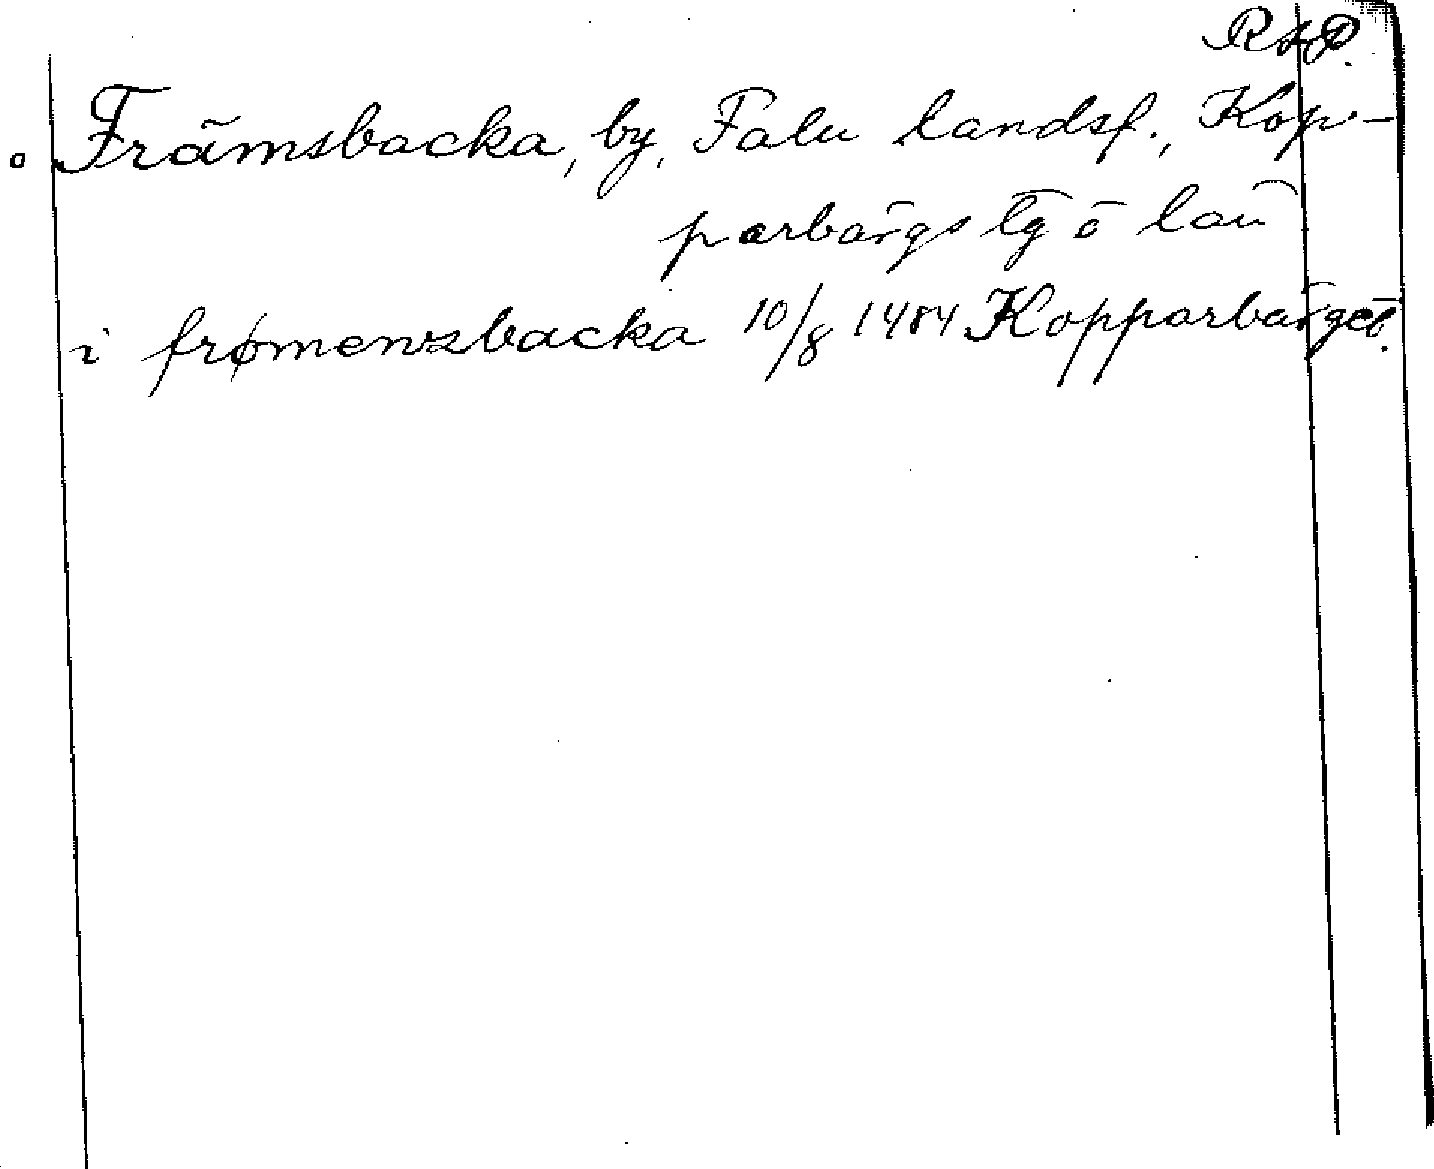 RAP.
Främsbacka, by, Falu landsf., Kop-
parbärgs lg o län
i frømenszbacka 10/8 1484 Kopparbärget.